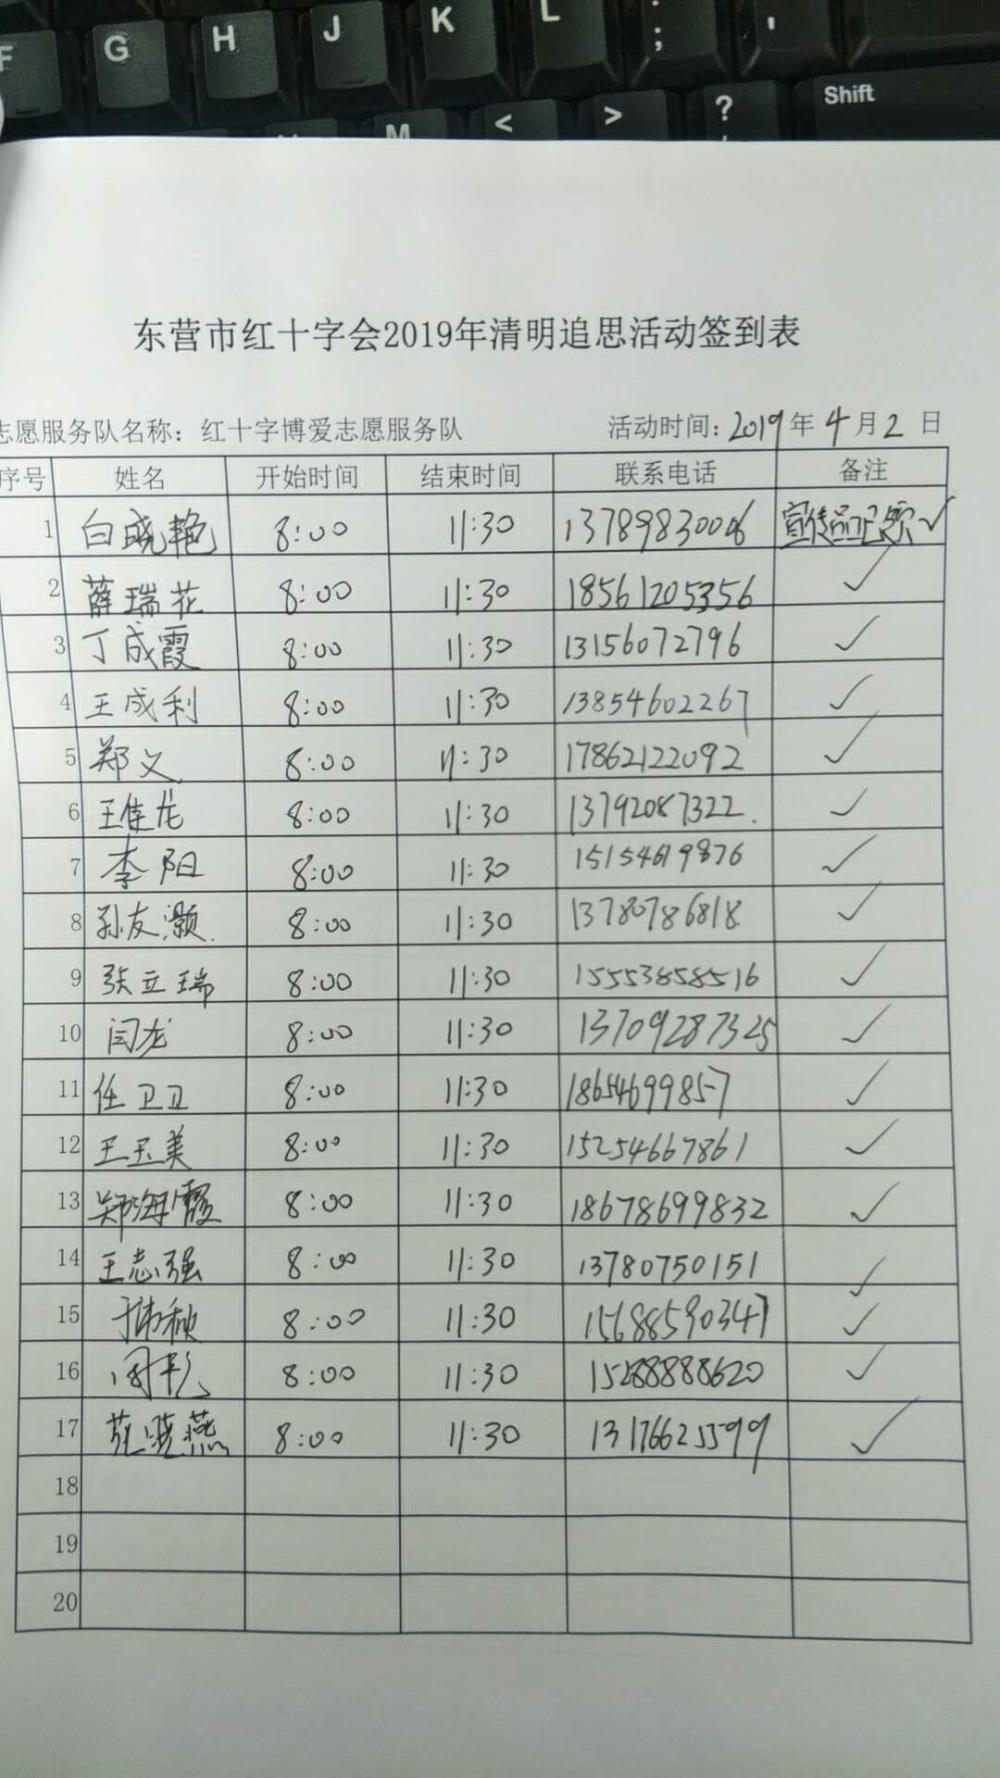 F G H J K L : ;
'
M < > ? Shift
东营市红十字会2019年清明追思活动签到表
志愿服务队名称：红十字博爱志愿服务队 活动时间：2019年4月2日
序号 姓名 开始时间 结束时间 联系电话 备注
1 白晓艳 8:00 11:30 13789830006 宣传品已领✓
2 薛瑞花 8:00 11:30 18561205356 ✓
3 丁成霞 8:00 11:30 13156072796 ✓
4 王成利 8:00 11:30 13854602267 ✓
5 郑义 8:00 11:30 17862122092 ✓
6 王佳龙 8:00 11:30 13792087322. ✓
7 李阳 8:00 11:30 15154619876 ✓
8 孙友灏 8:00 11:30 13780786818 ✓
9 张立瑞 8:00 11:30 15553858516 ✓
10 闫龙 8:00 11:30 13709287325 ✓
11 任卫卫 8:00 11:30 18654699857 ✓
12 王玉美 8:00 11:30 15254667861 ✓
13 郑海霞 8:00 11:30 18678699832 ✓
14 王志强 8:00 11:30 13780750151 ✓
15 8:00 11:30 15688590347 ✓
16 周彤 8:00 11:30 15288888620 ✓
17 晓燕 8:00 11:30 13176625599 ✓
18
19
20